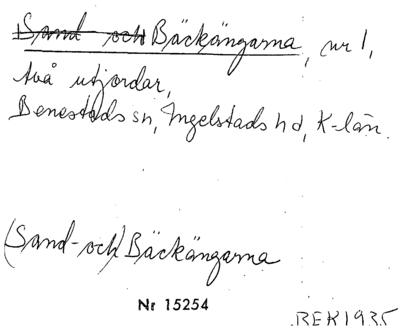 Sand och Bäckängarna, nr 1,
två utjordar,
Benestads sn, Ingelstads hd, K-län.
(Sand- och) Bäckängarna
Nr 15254
BEK 1935